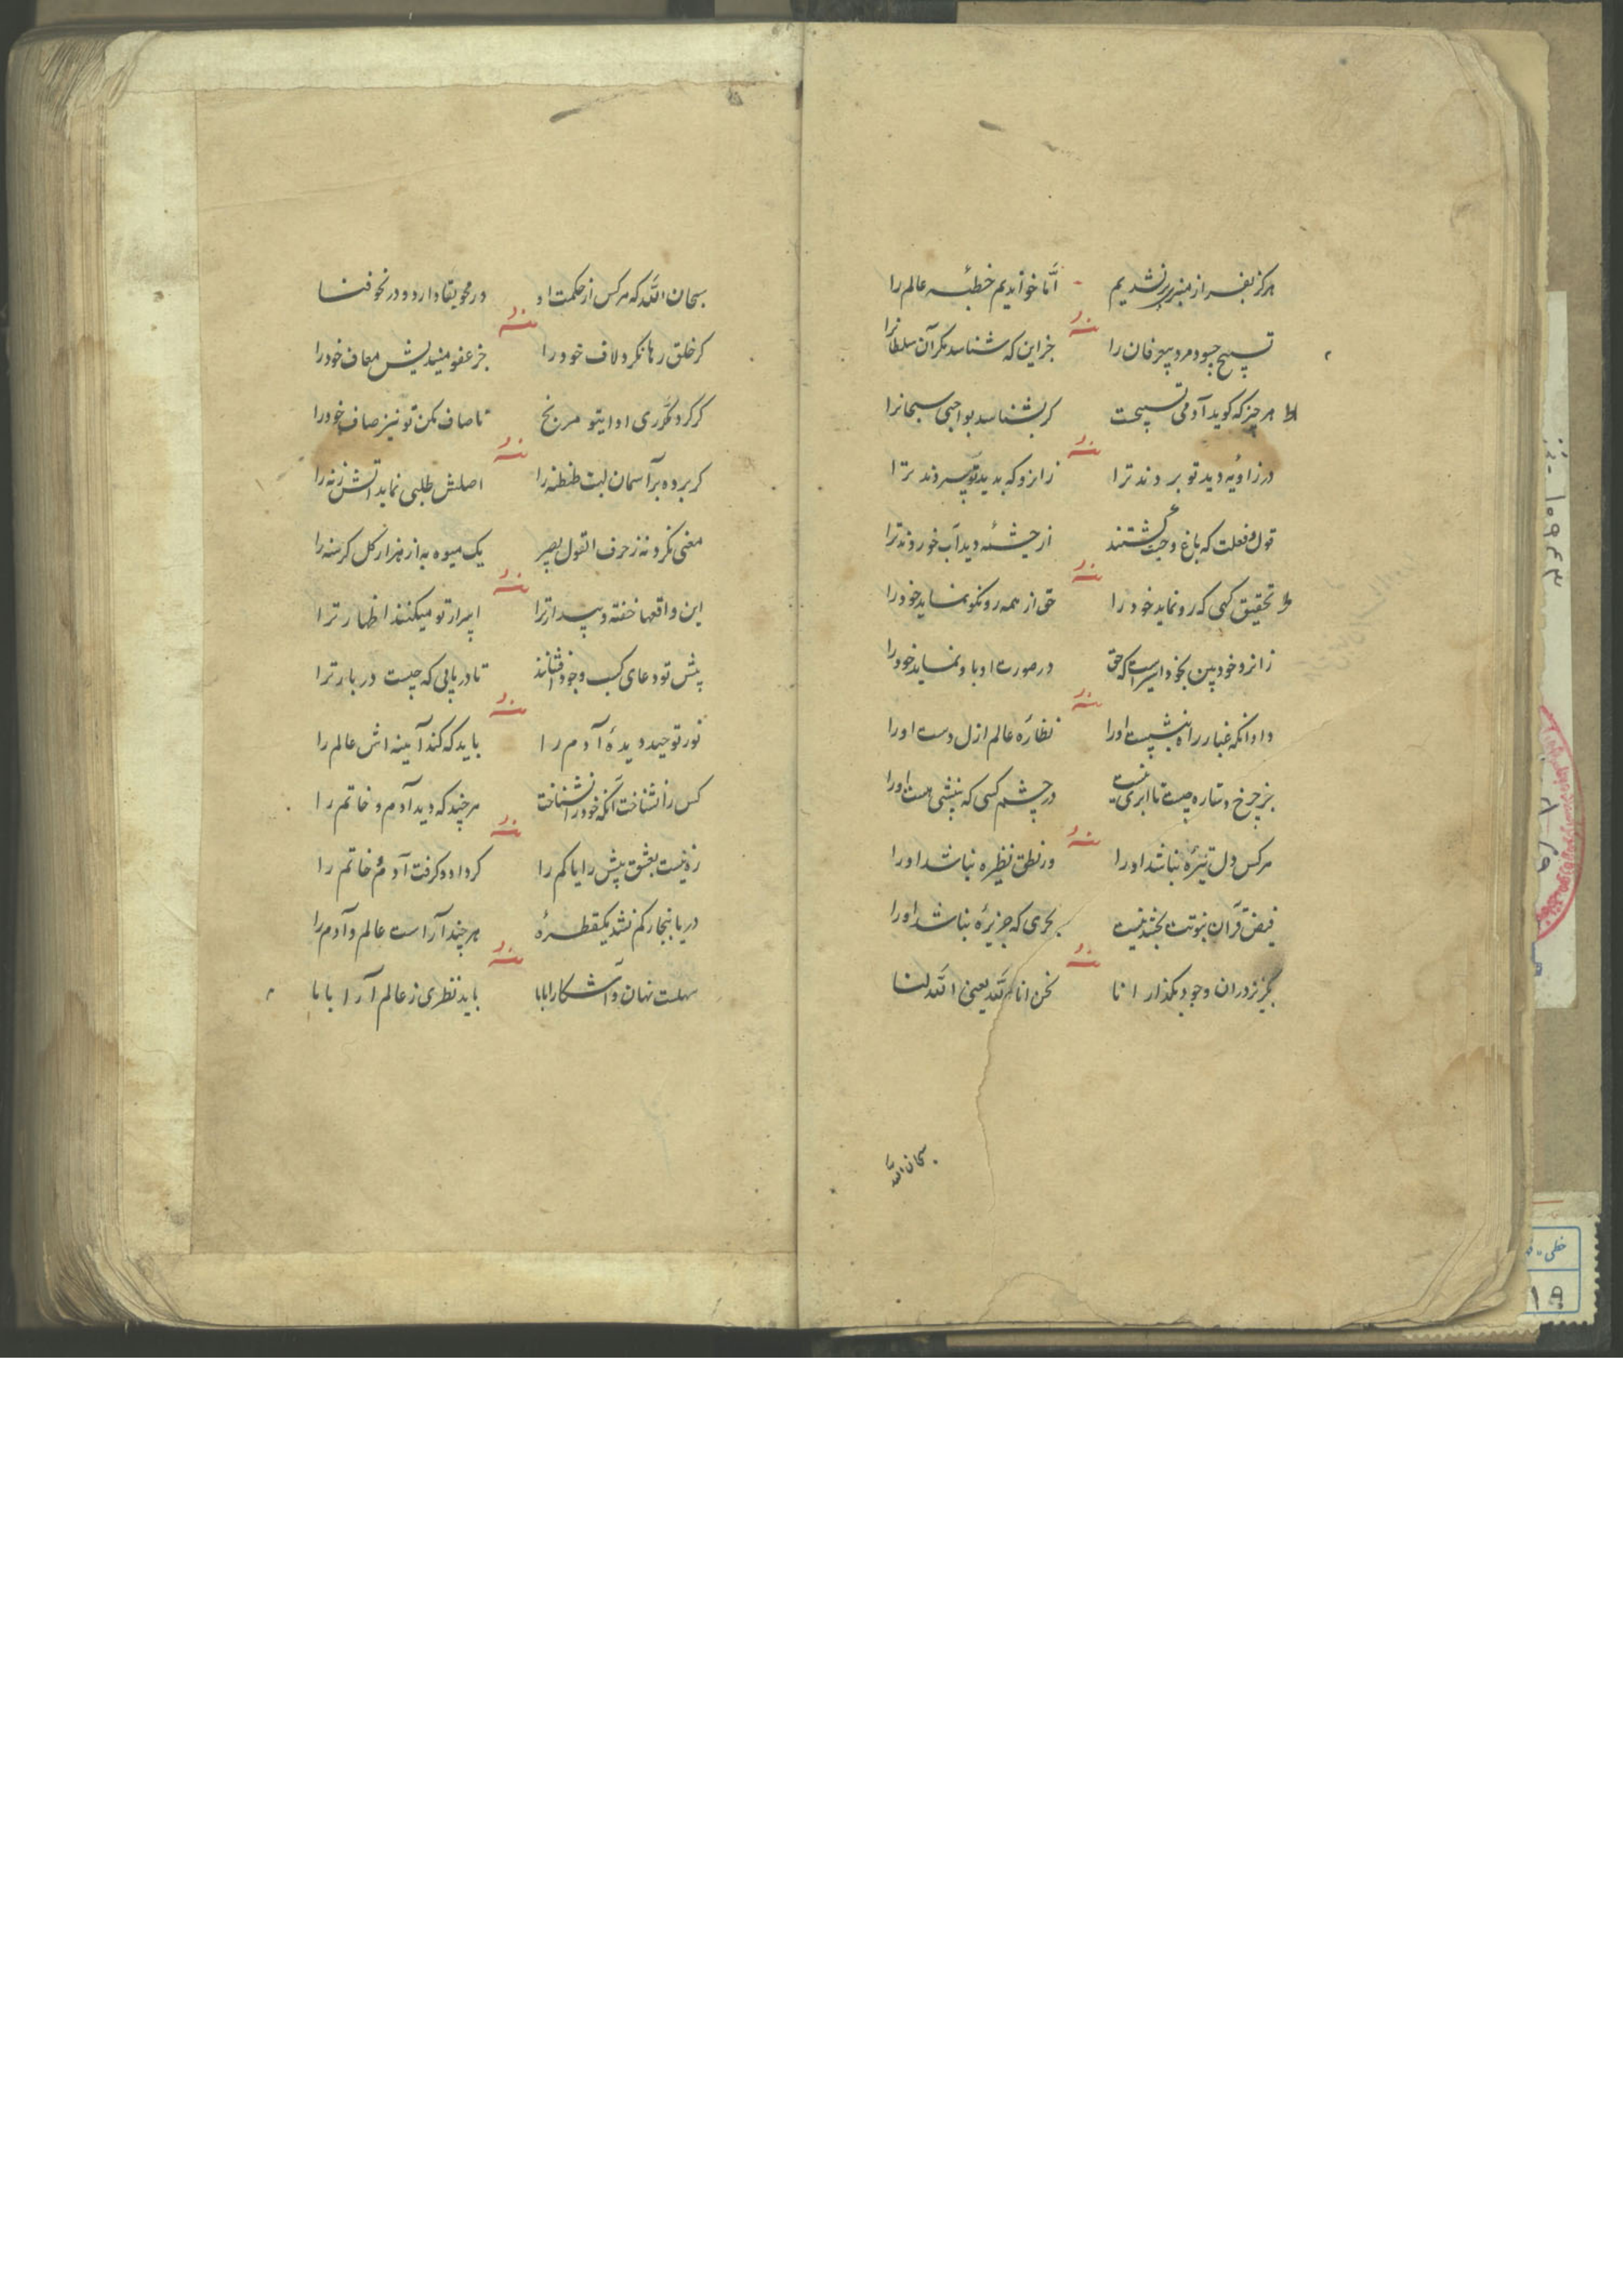 هرگز بفراز منبر بر نشدیم اما خواندیم خطبه عالم را
منه
تسبیح چبود مرد بیعرفان را جز این که شناسد مگر آن سلطانرا
هر چیز که کوید آدمی تسبیحست کر بشناسد بواجبی سبحانرا
منه
در زاویه دید تو بردند ترا زانرو که بدید تو سپردند ترا
قول و فعلت که باغ و جنت کشتند از چشمه دید آب خوردند ترا
منه
تحقیق کهی که رو نماید خود را حق از همه رو نکو نماید خود را
زانرو خودبین بخود اسیر است که حق در صورت او باو نماید خود را
منه
داد آنکه غبار راه بنشست او را نظاره عالم ازل دست او را
جز چرخ و ستاره چیست تا ابری نیست در چشم کسی که بینشی هست او را
منه
هر کس دل تیره نباشد او را در نطق نظیره نباشد او را
فیض قرآن نبوتت بخشد نیست بحری که جزیره نباشد او را
منه
بگریز در آن وجود بگذار انا نحن انا لله یعنی الله لنا
سبحان الله
سبحان الله که هر کس از حکمت او در محو بقا دارد و در نحو فنا
منه
کر خلق رها نکرد لاف خود را جز عفو میندیش معاف خود را
کر کرد مکرری ادا با تو مرنج ناصاف مکن تو نیز صاف خود را
منه
کر برده بر آسمان لبت طنطنه را اصلش طلبی نماید آتش زنه را
معنی نکرد نه زحرف القول بصیر یک میوه به از هزار کل کرسنه را
منه
این واقعها خفته و بیدار ترا اسرار تو میکنند اظهار ترا
پیش تو دعای کسب وجود افشانند تا دریابی که چیست در بار ترا
منه
نور توحید دیده آدم را باید که کند آینه اش عالم را
کس را نشناخت آنکه خود را نشناخت هر چند که دید آدم و خاتم را
منه
ره نیست بعشق بیش را یا کم را کرد او و کرفت آدم خاتم را
دریا ببخار کم نشد یکقطره هر چند آراست عالم و آدم را
منه
سهلست نهان و آشکارا بابا باید نظری ز عالم آرا بابا